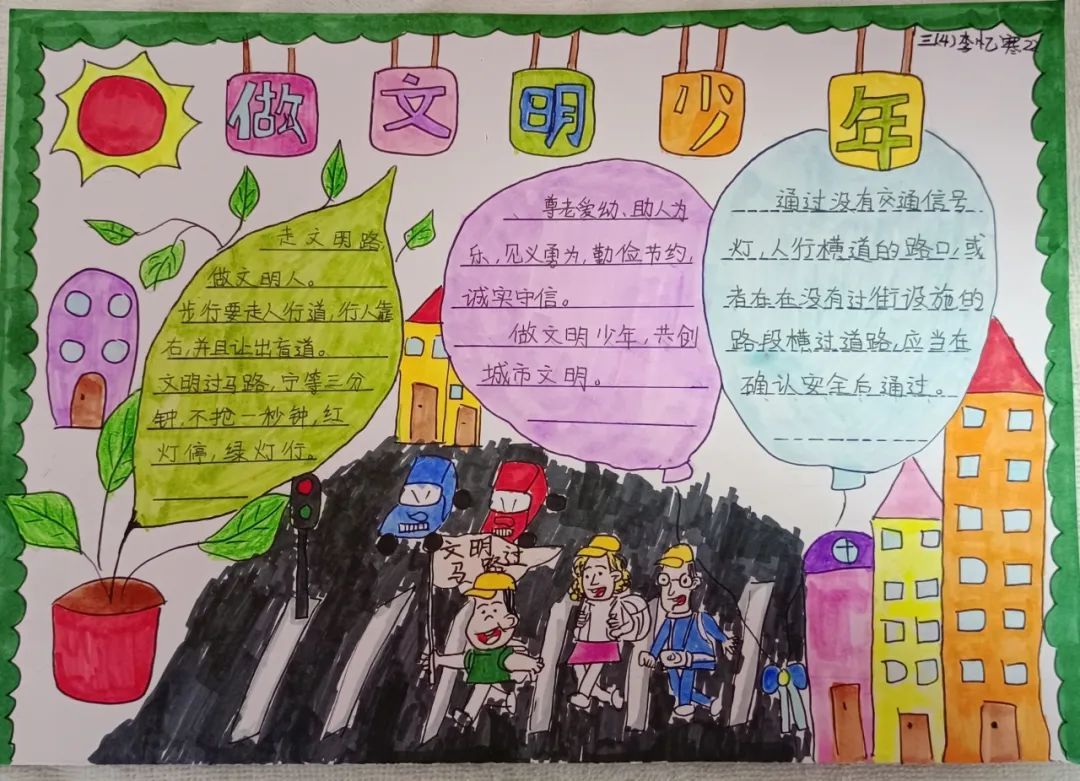 三(4)李忆寒22
做文明少年
走文明路,
做文明人。
步行要走人行道,行人靠
右,并且让出盲道。
文明过马路,宁等三分
钟,不抢一秒钟,红
灯停,绿灯行。
、尊老爱幼、助人为
乐,见义勇为,勤俭节约,
诚实守信。
做文明少年,共创
城市文明。
通过没有交通信号
灯,人行横道的路口,或
者在在没有过街设施的
路段横过道路,应当在
确认安全后通过。
文明过
马路